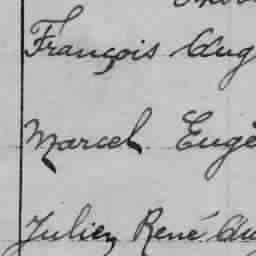 François Aug
Marcel Eugè
Julien René Au